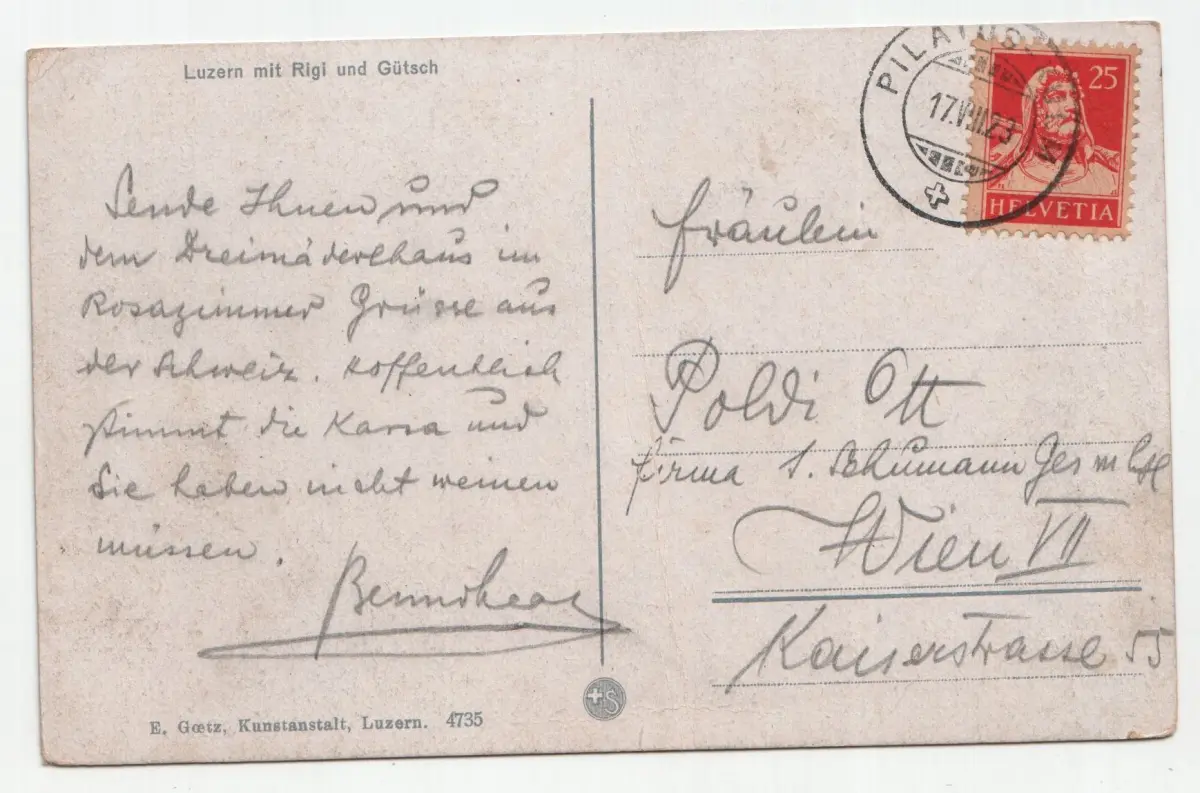 Luzern mit Rigi und Gütsch
Sende Ihnen und
dem Dreimäderlhaus im
Rosazimmer Grüsse aus
der Schweiz. Hoffentlich
stimmt die Kassa und
Sie haben nicht weinen
müssen.
E. Gœtz, Kunstanstalt, Luzern. 4735
S
PILATUS
17.VIII.23
25
HELVETIA
Fräulein
Poldi Ott
Firma S. Schumann Ges m b H
Wien VII
Kaiserstrasse 55